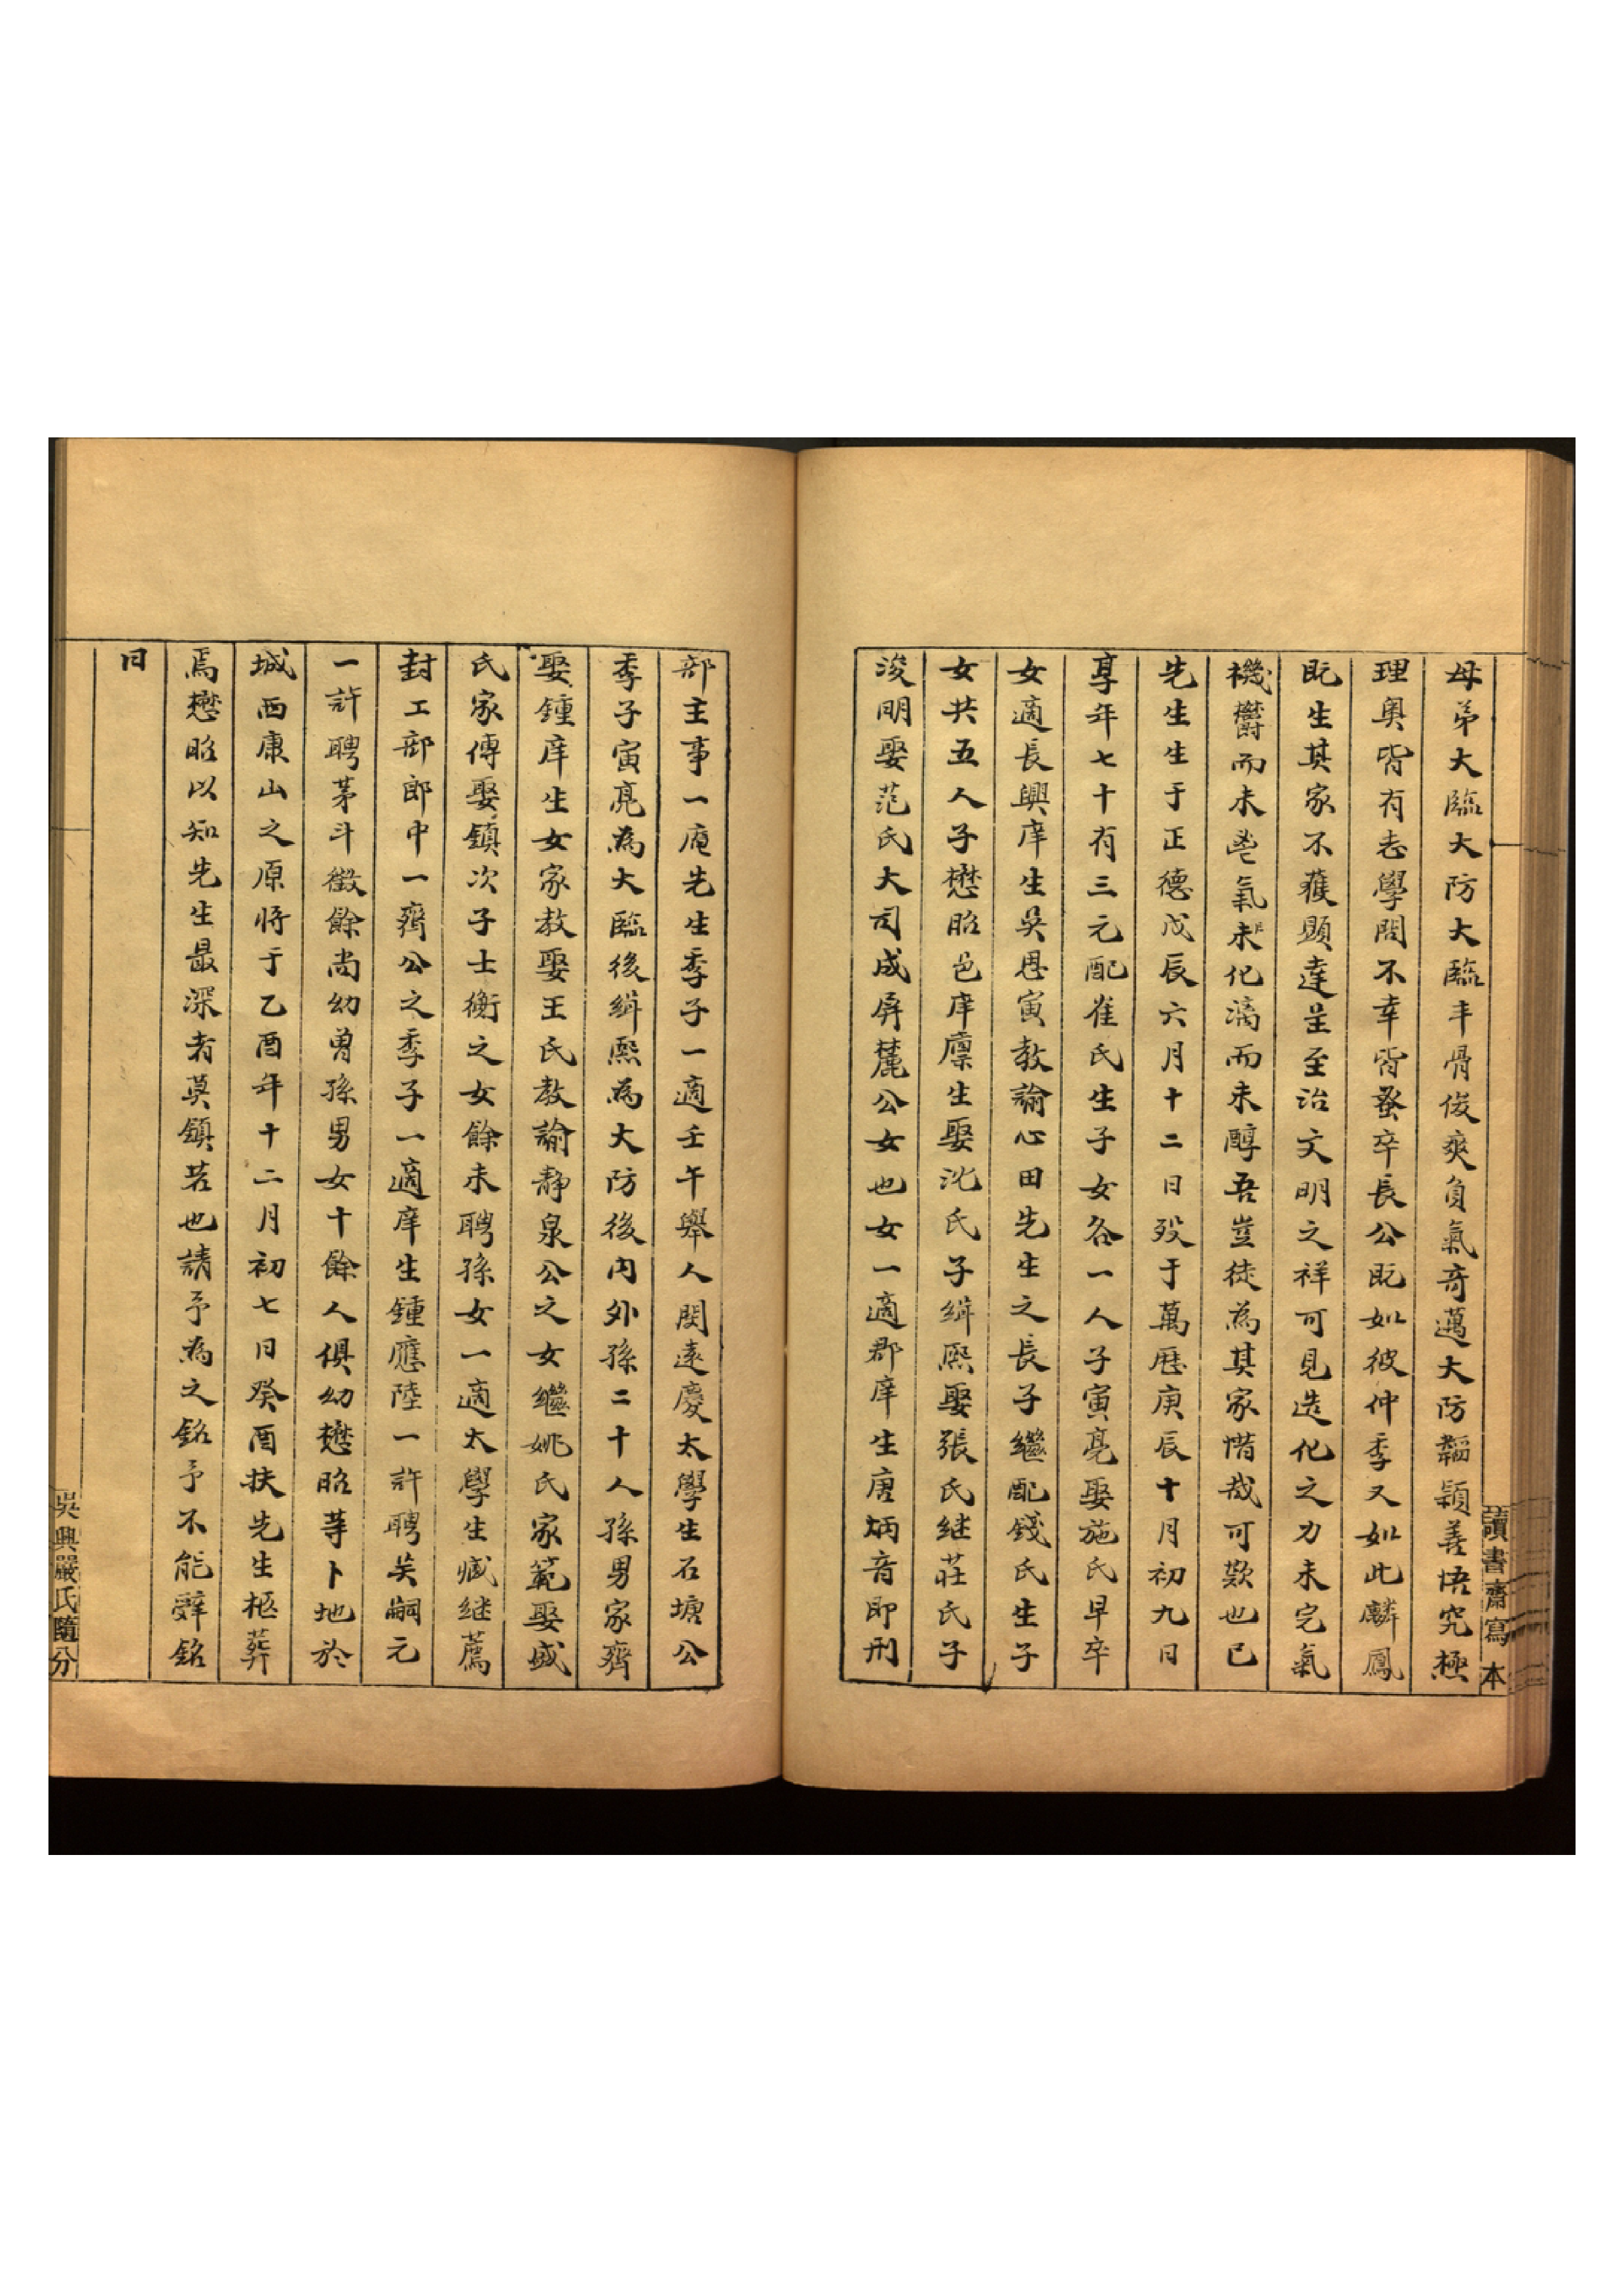 讀書齋寫本
母弟大臨大防大臨丰骨俊爽負氣奇邁大防韜穎善悟究極
理奥皆有志學問不幸皆蚤卒長公既如彼仲季又如此麟鳳
既生其家不獲顯達呈至治文明之祥可見造化之力未完氣
機欝而未鬯氣未化漓而未醇吾豈徒為其家惜哉可歎也已
先生生于正德戊辰六月十二日歿于萬歷庚辰十月初九日
享年七十有三元配崔氏生子女各一人子寅亮娶施氏早卒
女適長興庠生吳思寅教諭心田先生之長子繼配錢氏生子
女共五人子懋昭邑庠廪生娶沈氏子緝熙娶張氏继莊氏子
浚明娶范氏大司成屏麓公女也女一適郡庠生唐炳音即刑
部主事一庵先生季子一適壬午舉人閔遠慶太學生石塘公
季子寅亮為大臨後緝熙為大防後内外孫二十人孫男家齊
娶鍾庠生女家教娶王氏教諭靜泉公之女繼姚氏家範娶戚
氏家傳娶鎮次子士衡之女餘未聘孫女一適太學生臧继薦
封工部郎中一齋公之季子一適庠生鍾應陸一許聘吴嗣元
一許聘茅斗徵餘尚幼曽孫男女十餘人俱幼懋昭等卜地於
城西康山之原將于乙酉年十二月初七日癸酉扶先生柩葬
焉懋昭以知先生最深者莫鎮若也請予為之銘予不能辭銘
曰
吳興嚴氏隨分